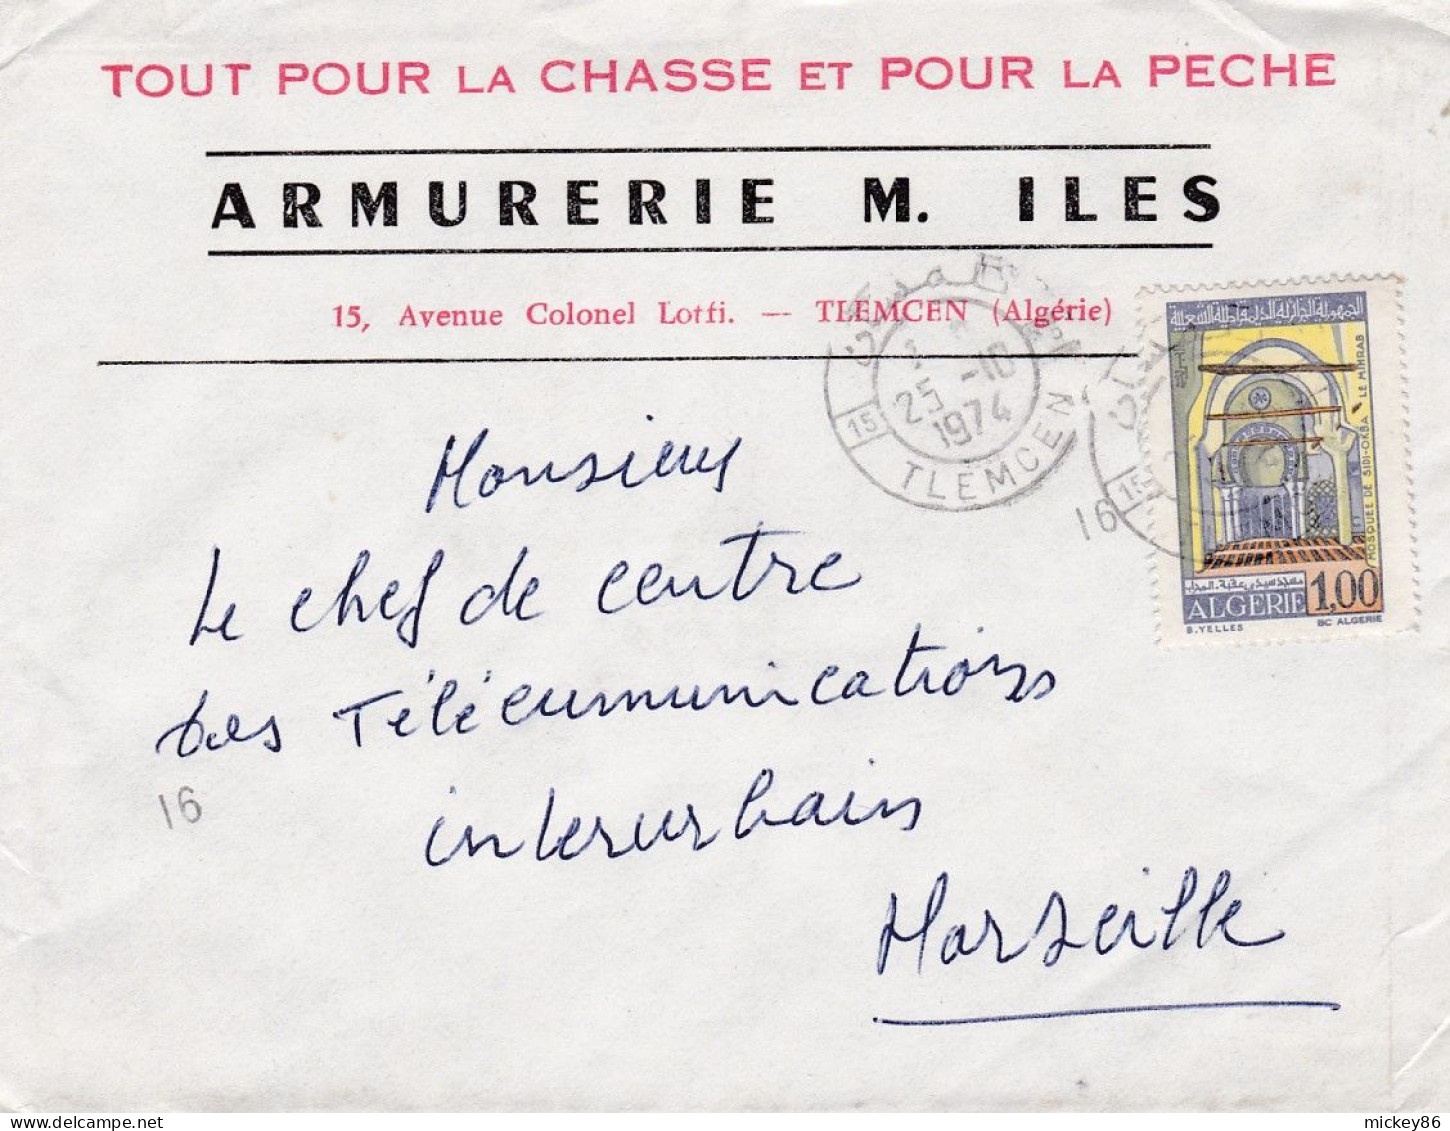 TOUT POUR LA CHASSE ET POUR LA PECHE
ARMURERIE M. ILES
15, Avenue Colonel Lotfi. — TLEMCEN (Algérie)
25 -10
1974
15
TLEMCEN
15
16
الجمهورية الجزائرية الديمقراطية الشعبية
MOSQUEE DE SIDI-OKBA - LE MIHRAB
مسجد سيدي عقبة - المحراب
ALGERIE 1,00
B. YELLES BC ALGERIE
Monsieur
Le chef de centre
des Télécommunications
16
interurbain
Marseille
mickey86